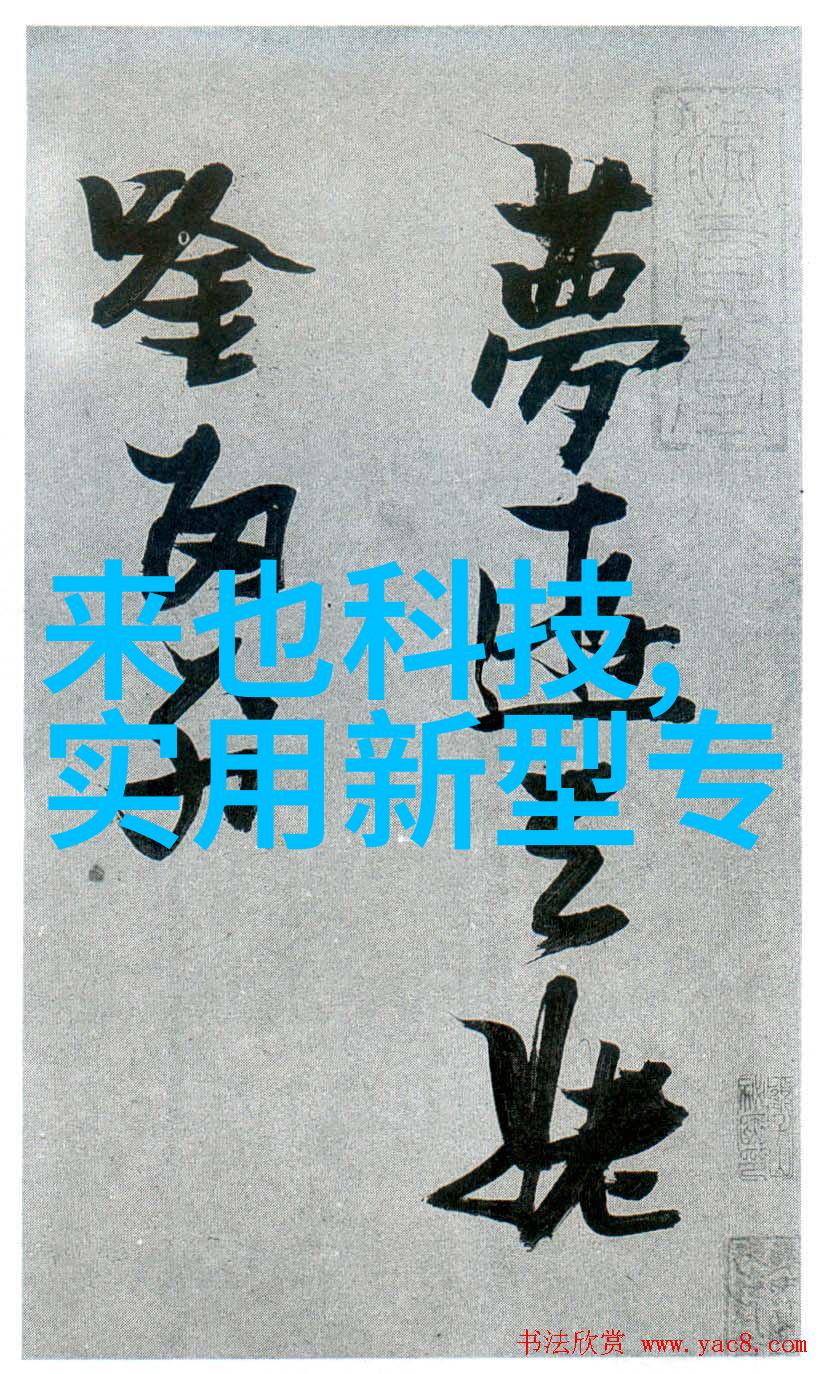 夢遊天姥
唫留别
来也科技,
实用新型专
书法欣赏 www.yac8.com